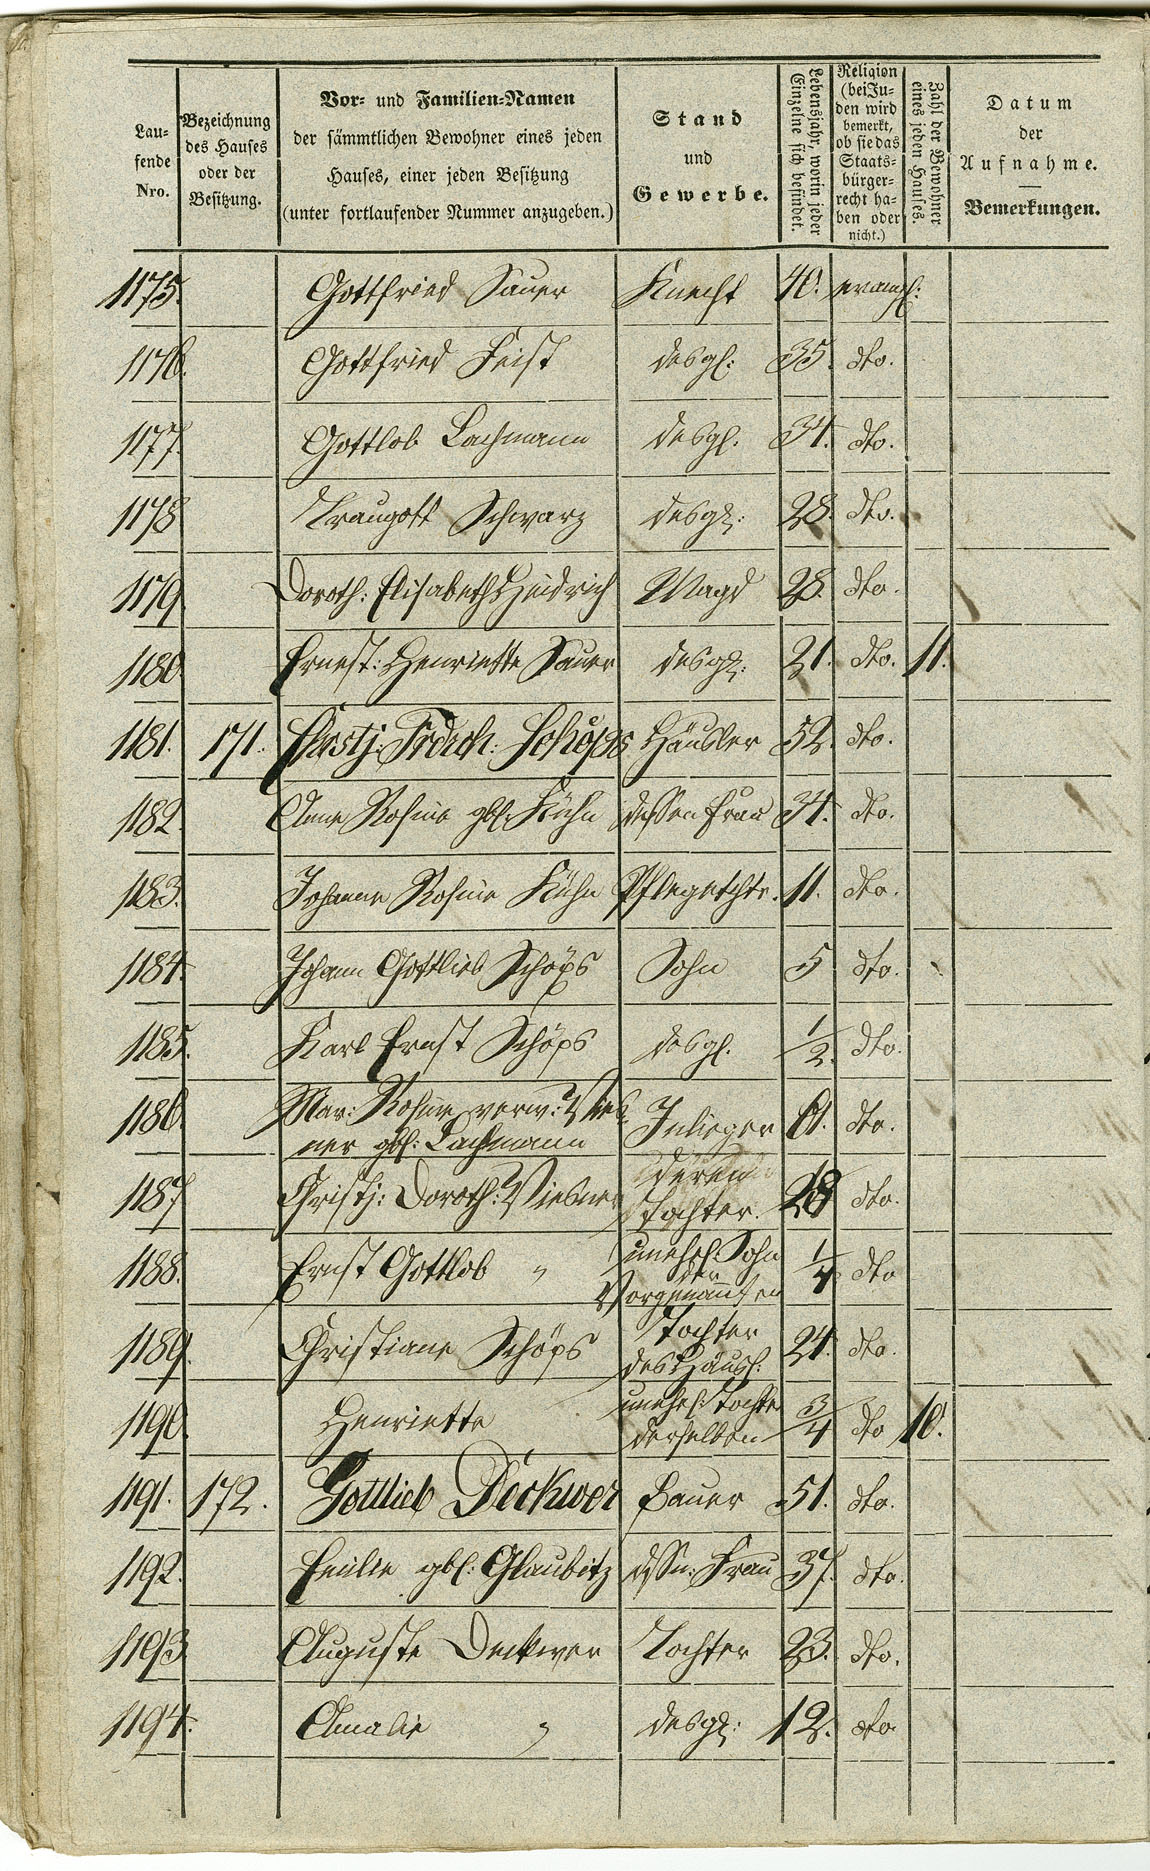 Lau-
fende
Nro.
Bezeichnung
des Hauses
oder der
Besitzung.
Vor- und Familien-Namen
der sämmtlichen Bewohner eines jeden
Hauses, einer jeden Besitzung
(unter fortlaufender Nummer anzugeben.)
Stand
und
Gewerbe.
Lebensjahr, worin jeder
Einzelne sich befindet.
Religion
(bei Ju-
den wird
bemerkt,
ob sie das
Staats-
bürger-
recht ha-
ben oder
nicht.)
Zahl der Bewohner
eines jeden Hauses.
Datum
der
Aufnahme.
Bemerkungen.
1175. Gottfried Sauer Knecht 40. evangl:
1176. Gottfried Feist desgl: 35. dto.
1177. Gottlob Lachmann desgl. 34. dto.
1178 Traugott Schwarz desgl: 28. dto.
1179. Doroth: Elisabeth Heidrich Magd 28. dto.
1180. Ernest: Henriette Sauer desgl: 21. dto. 11.
1181. 171. Christj: Frdrch: Schöps Häusler 52. dto.
1182. Anne Rosine gbl: Kühn dessen Frau 34. dto.
1183. Johanne Rosine Kühn Pflegetchtr. 11. dto.
1184. Johann Gottlieb Schöps Sohn 5 dto.
1185. Karl Ernst Schöps desgl. 1/2. dto.
1186. Mar: Rosine verw: Wies-
ner gbl: Lachmann Inlieger 61. dto.
1187 Christj: Doroth: Wiesner deren
Tochter. 28 dto.
1188. Ernst Gottlob " unehel: Sohn
der
Vorgenannten 1/4 dto
1189. Christiane Schöps Tochter
des Häusl: 24. dto.
1190. Henriette unehel: Tochter
derselben 3/4 dto 10.
1191. 172. Gottlieb Deckwer Bauer 51. dto.
1192. Emilie gbl: Glaubitz dssn: Frau 37. dto.
1193 Auguste Deckwer Tochter 23. dto.
1194. Amalie " desgl: 12. dto